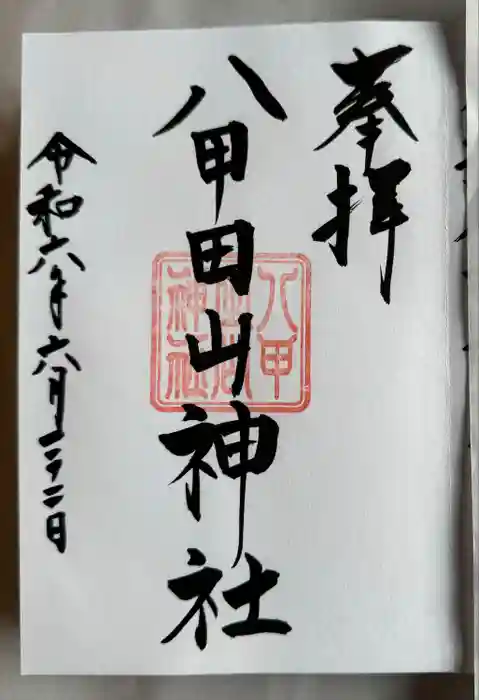 奉拝
八甲田山神社
八甲田山神社
令和六年六月二十二日